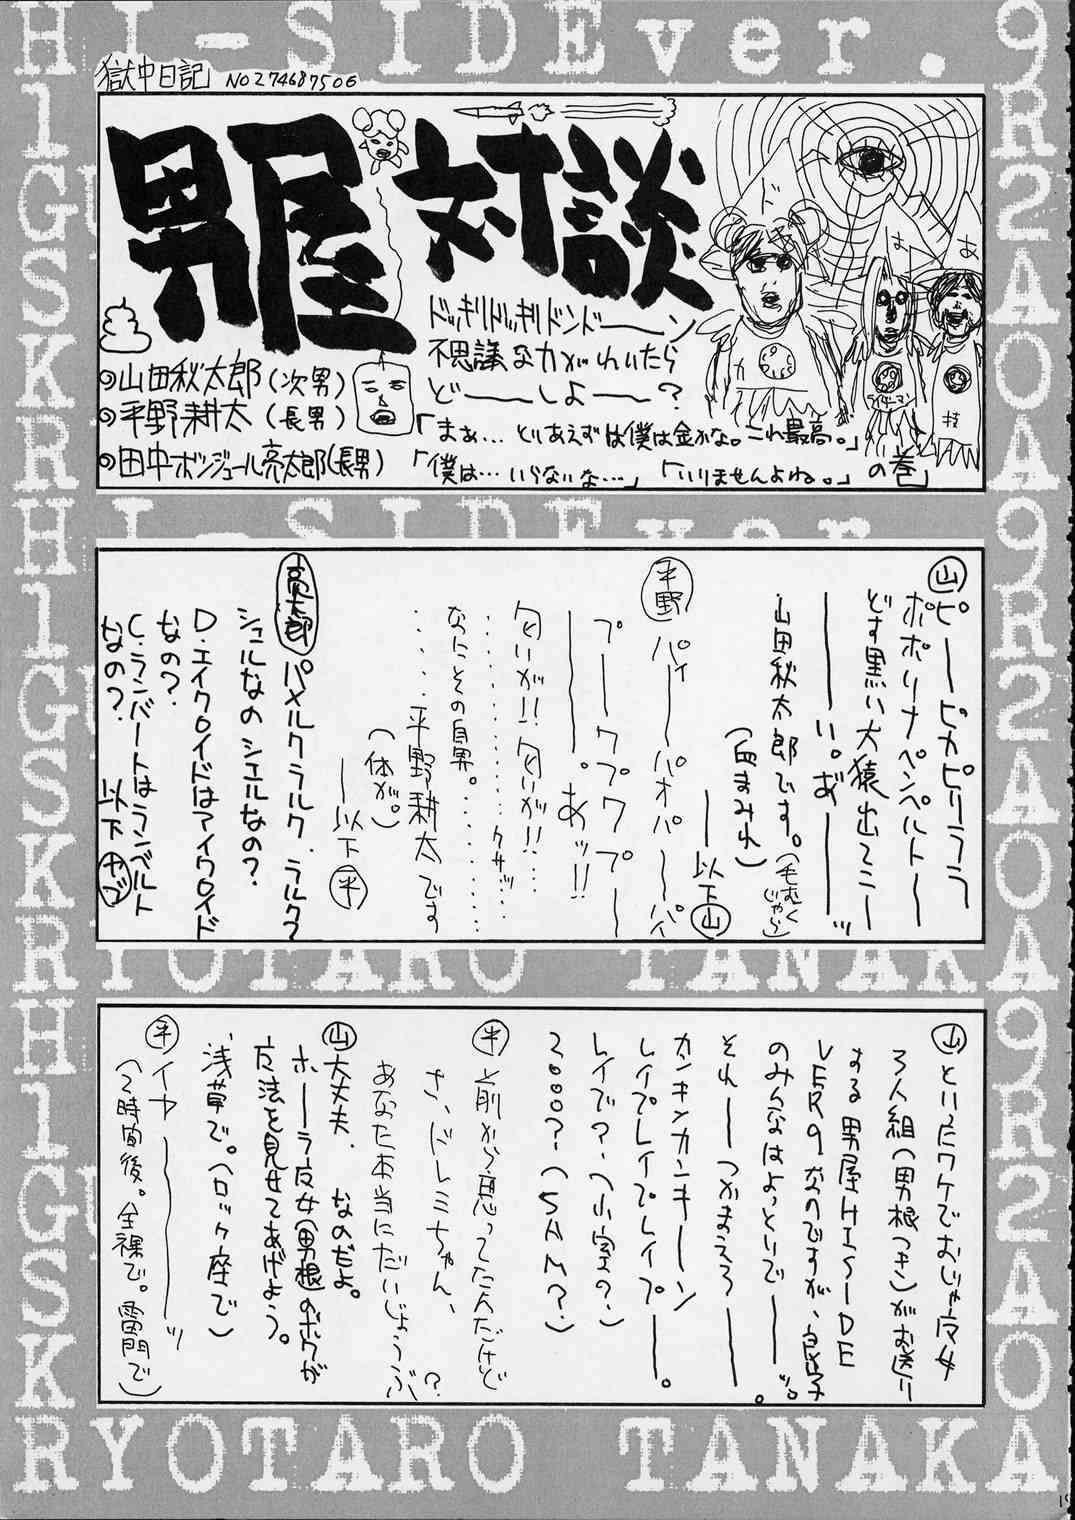 HI-SIDEver.9
獄中日記 NO274687506
男屋対談
ドッキリドッキリドンドーーン
不思議な力がわいたら
どーーしよーー?
◎山田秋太郎(次男)
◎平野耕太(長男)
◎田中ボンジュール亮太郎(長男)
「まぁ…とりあえずは僕は金かな。これ最高。」
「僕は…いらないな…」「いりませんよね。」の巻
HI-SIDEver.
山 ピーーピカピリララ
ポポリナペンペルトー
どす黒い大猿出てこー
ーーい。あ゛ーーッ
山田秋太郎です。(毛むくじゃら)
(血まみれ)
ーー以下山
平野 パイーーパオパーーパ
プーーワプワプーー
ーー。あッ!!
匂いが!!匂いが!!…
………クサッ……
なんとその自男。………
……平野耕太です
(体が。)
ー以下平
亮太郎 パメルクラルク、ラルク?
シュルなのシエルなの?
D・エイクロイドはアイクロイド
なの?
C・ランバートはランベルト
なの? 以下ヤブ
RYOTARO TANAKA
山 といったワケでおじゃ魔女
3人組(男根つき)がお送り
する男屋HISIDE
VER9なのですが、良い子
のみんなはよっといでーーッ。
それーーつかまろうーー。
カンキンカンキーーン
レイプレイプレイプーー。
レイで?(小室の?)
2000?(SAM?)
平 前から思ってたんだけど
さ、ドレミちゃん、
あなた本当にだいじょうぶ?
山 大丈夫、なのだよ。
ホーラ魔女(男根)のボクが
魔法を見せてあげよう。
浅草で。(ロック座で)
平 イヤーーーッ
(2時間後。全裸で。雷門で)
RYOTARO TANAKA